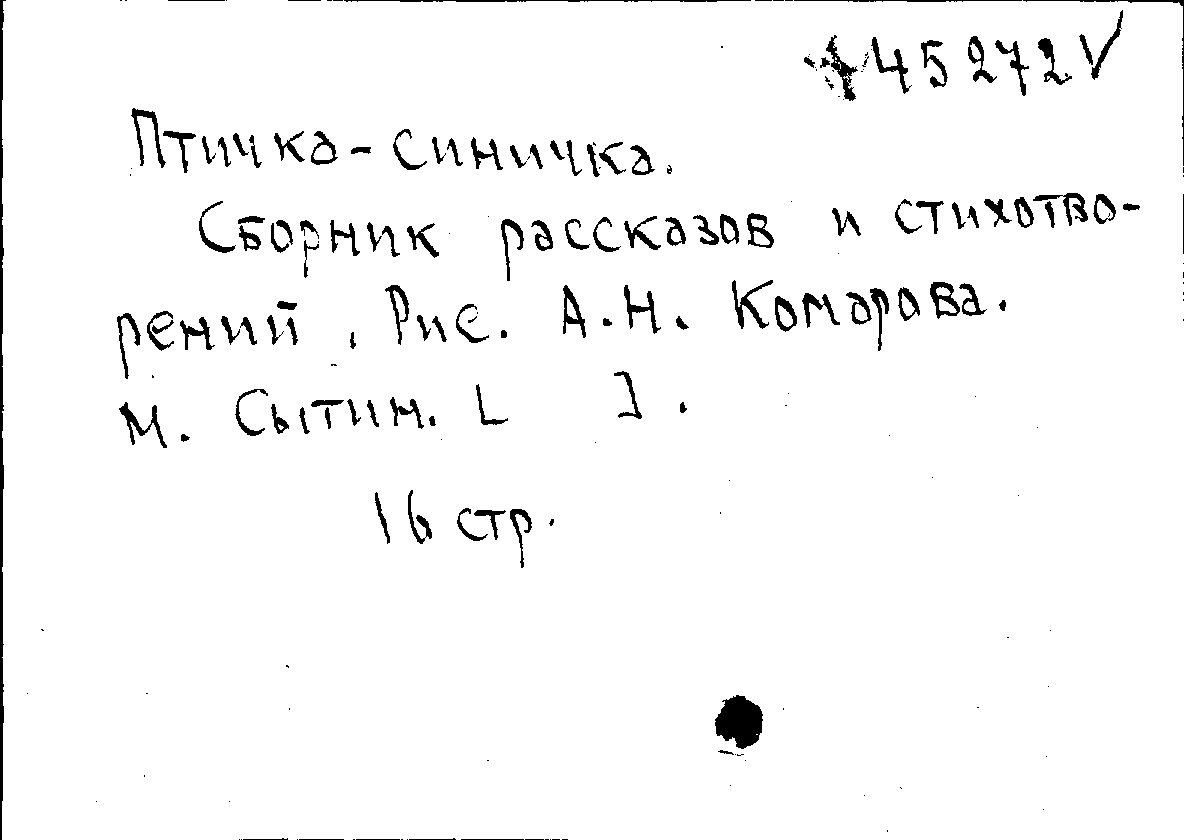 45272 V
Птичка-синичка.
Сборник рассказов и стихотво-
рений. Рис. А.Н. Комарова.
М. Сытин. [ ].
16 стр.